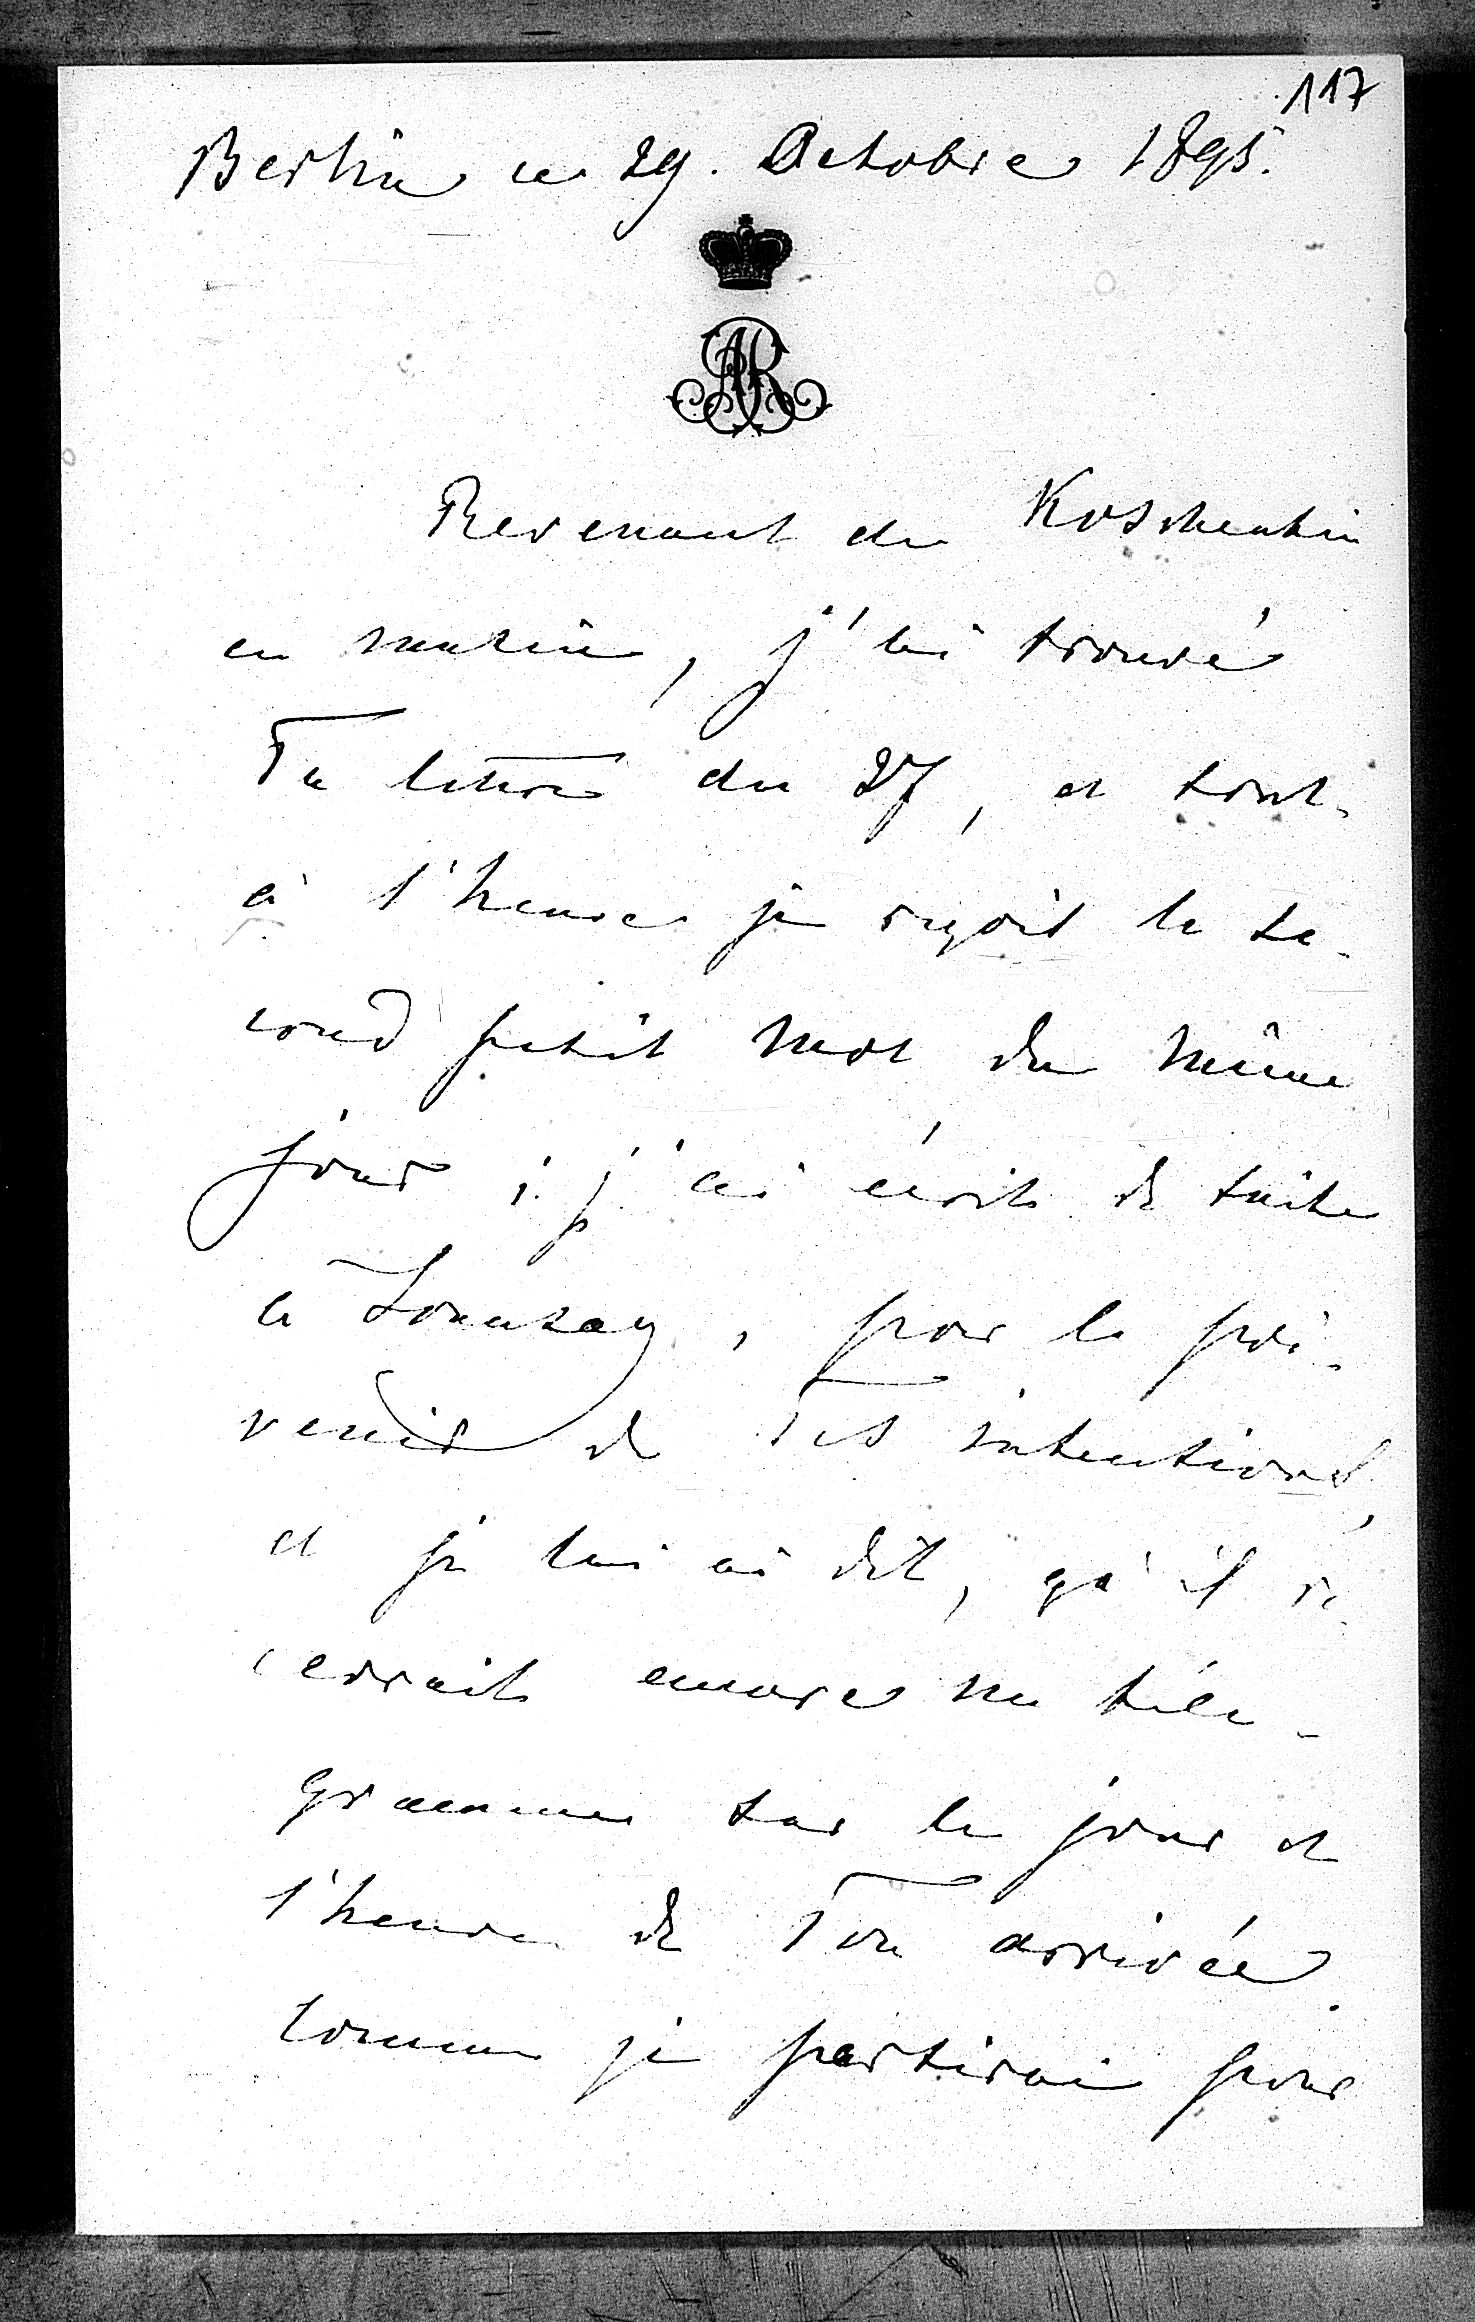 117
Berlin ce 29. Octobre 1895.
AR
Revenant de Koschentin
ce matin, j'ai trouvé
Ta lettre du 27, et tout-
à l'heure je reçois le se-
cond petit mot du même
jour; j'ai écrit de suite
à , pour le pré-
venir de Tes intentions,
et je lui ai dit, qu'il re-
cevrait encore un télé-
gramme sur le jour et
l'heure de Ton arrivée.
Comme je partirai pour